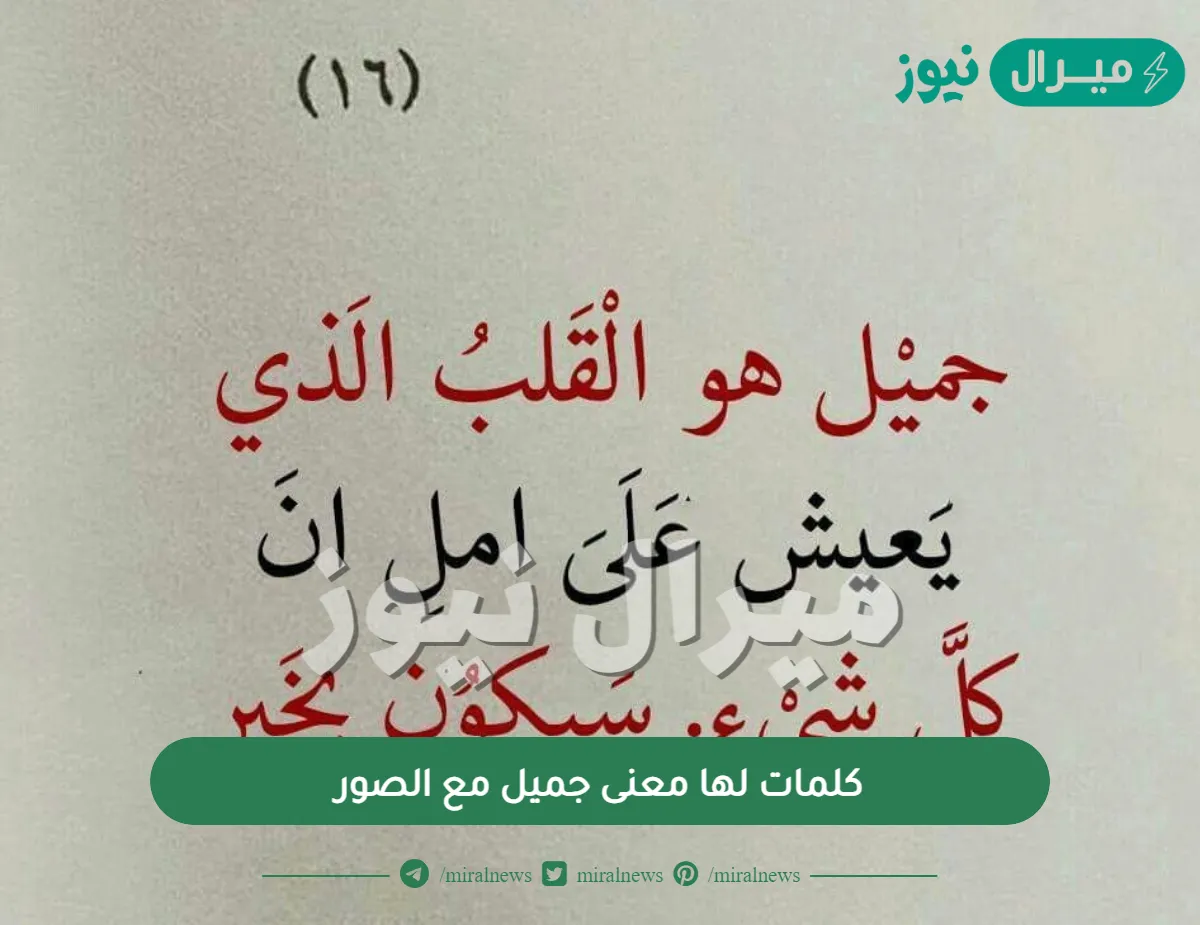 ميرال نيوز
(١٦)
جميْل هو الْقَلبُ الَذي
يَعيش عَلَىَ املِ انَ
كلَّ شيْءٍ سَيكوُن بخَير
ميرال نيوز
كلمات لها معنى جميل مع الصور
/miralnews miralnews /miralnews